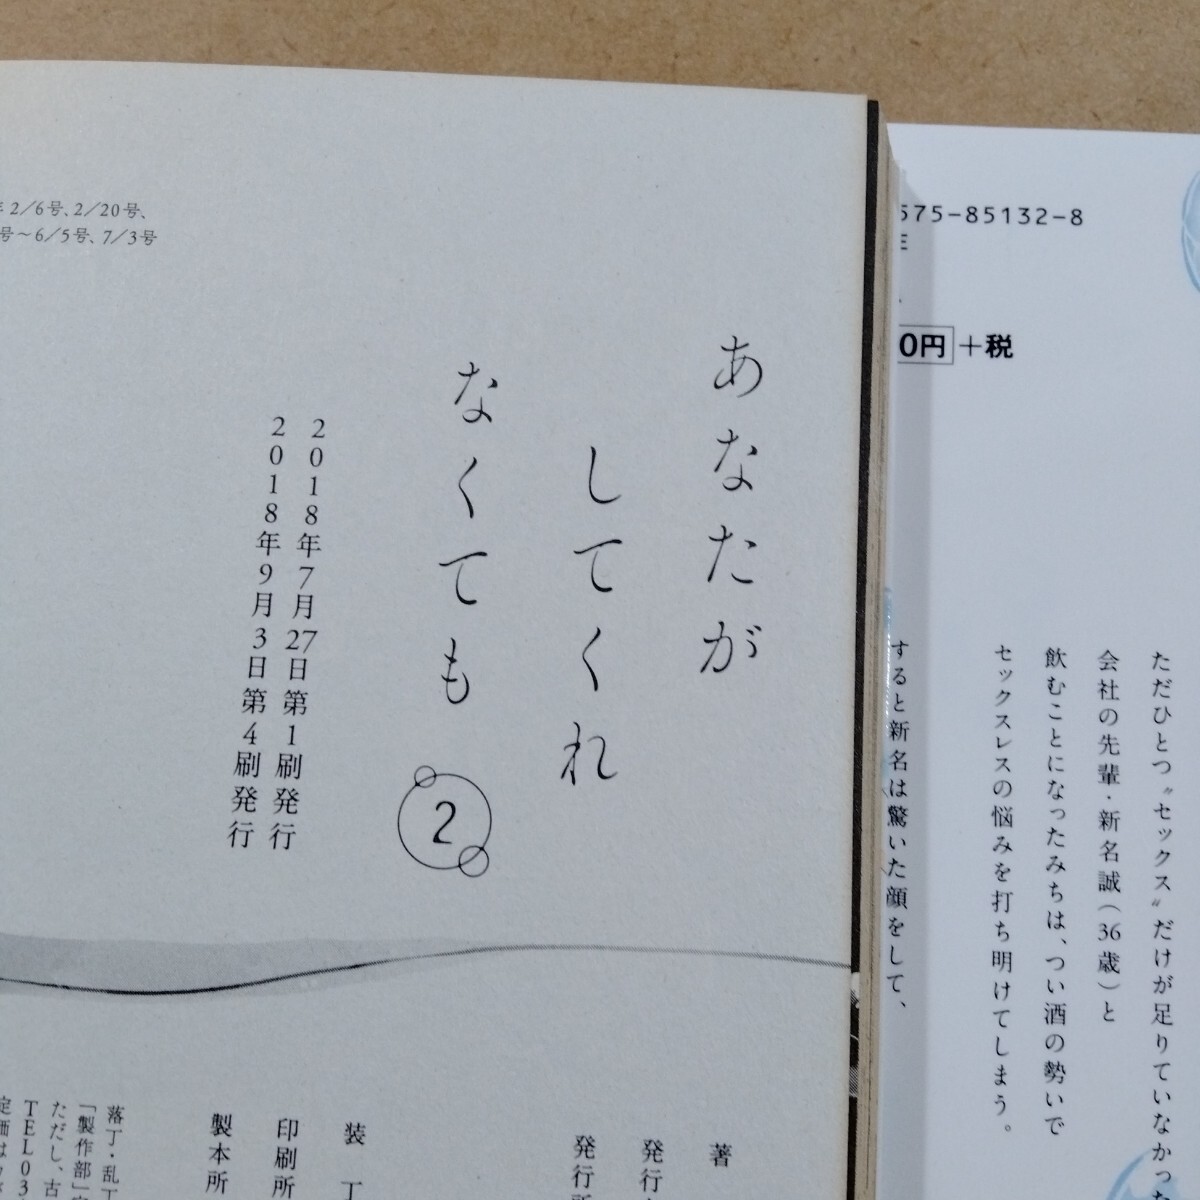 年2/6号、2/20号、
号～6/5号、7/3号
あなたが
してくれ
なくても
2
2018年7月27日第1刷発行
2018年9月3日第4刷発行
著
発行
発行所
装丁
印刷所
製本所
落丁・乱丁
「製作部」
ただし、古
TEL03
定価は
575-85132-8
0円+税
ただひとつ〝セックス〟だけが足りていなかった
会社の先輩・新名誠(36歳)と
飲むことになったみちは、つい酒の勢いで
セックスレスの悩みを打ち明けてしまう。
すると新名は驚いた顔をして、